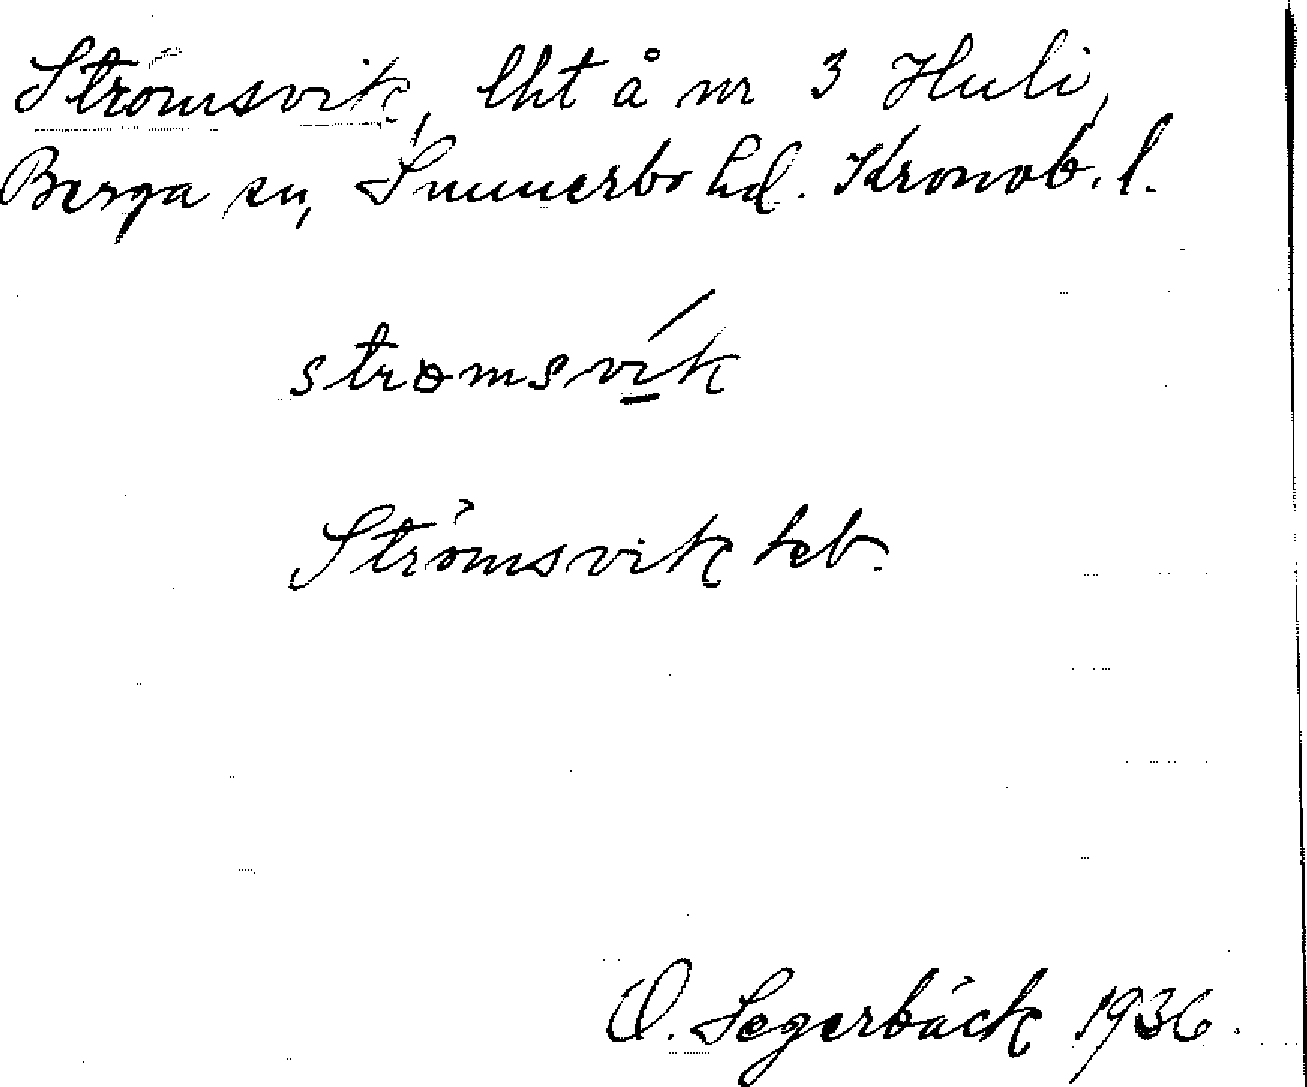 Strömsvik, lht å nr 3 Huli,
Berga sn, Sunnerbo hd. Kronob. l.
strømsvík
Strömsvik hcb.
O. Segerbäck 1936.